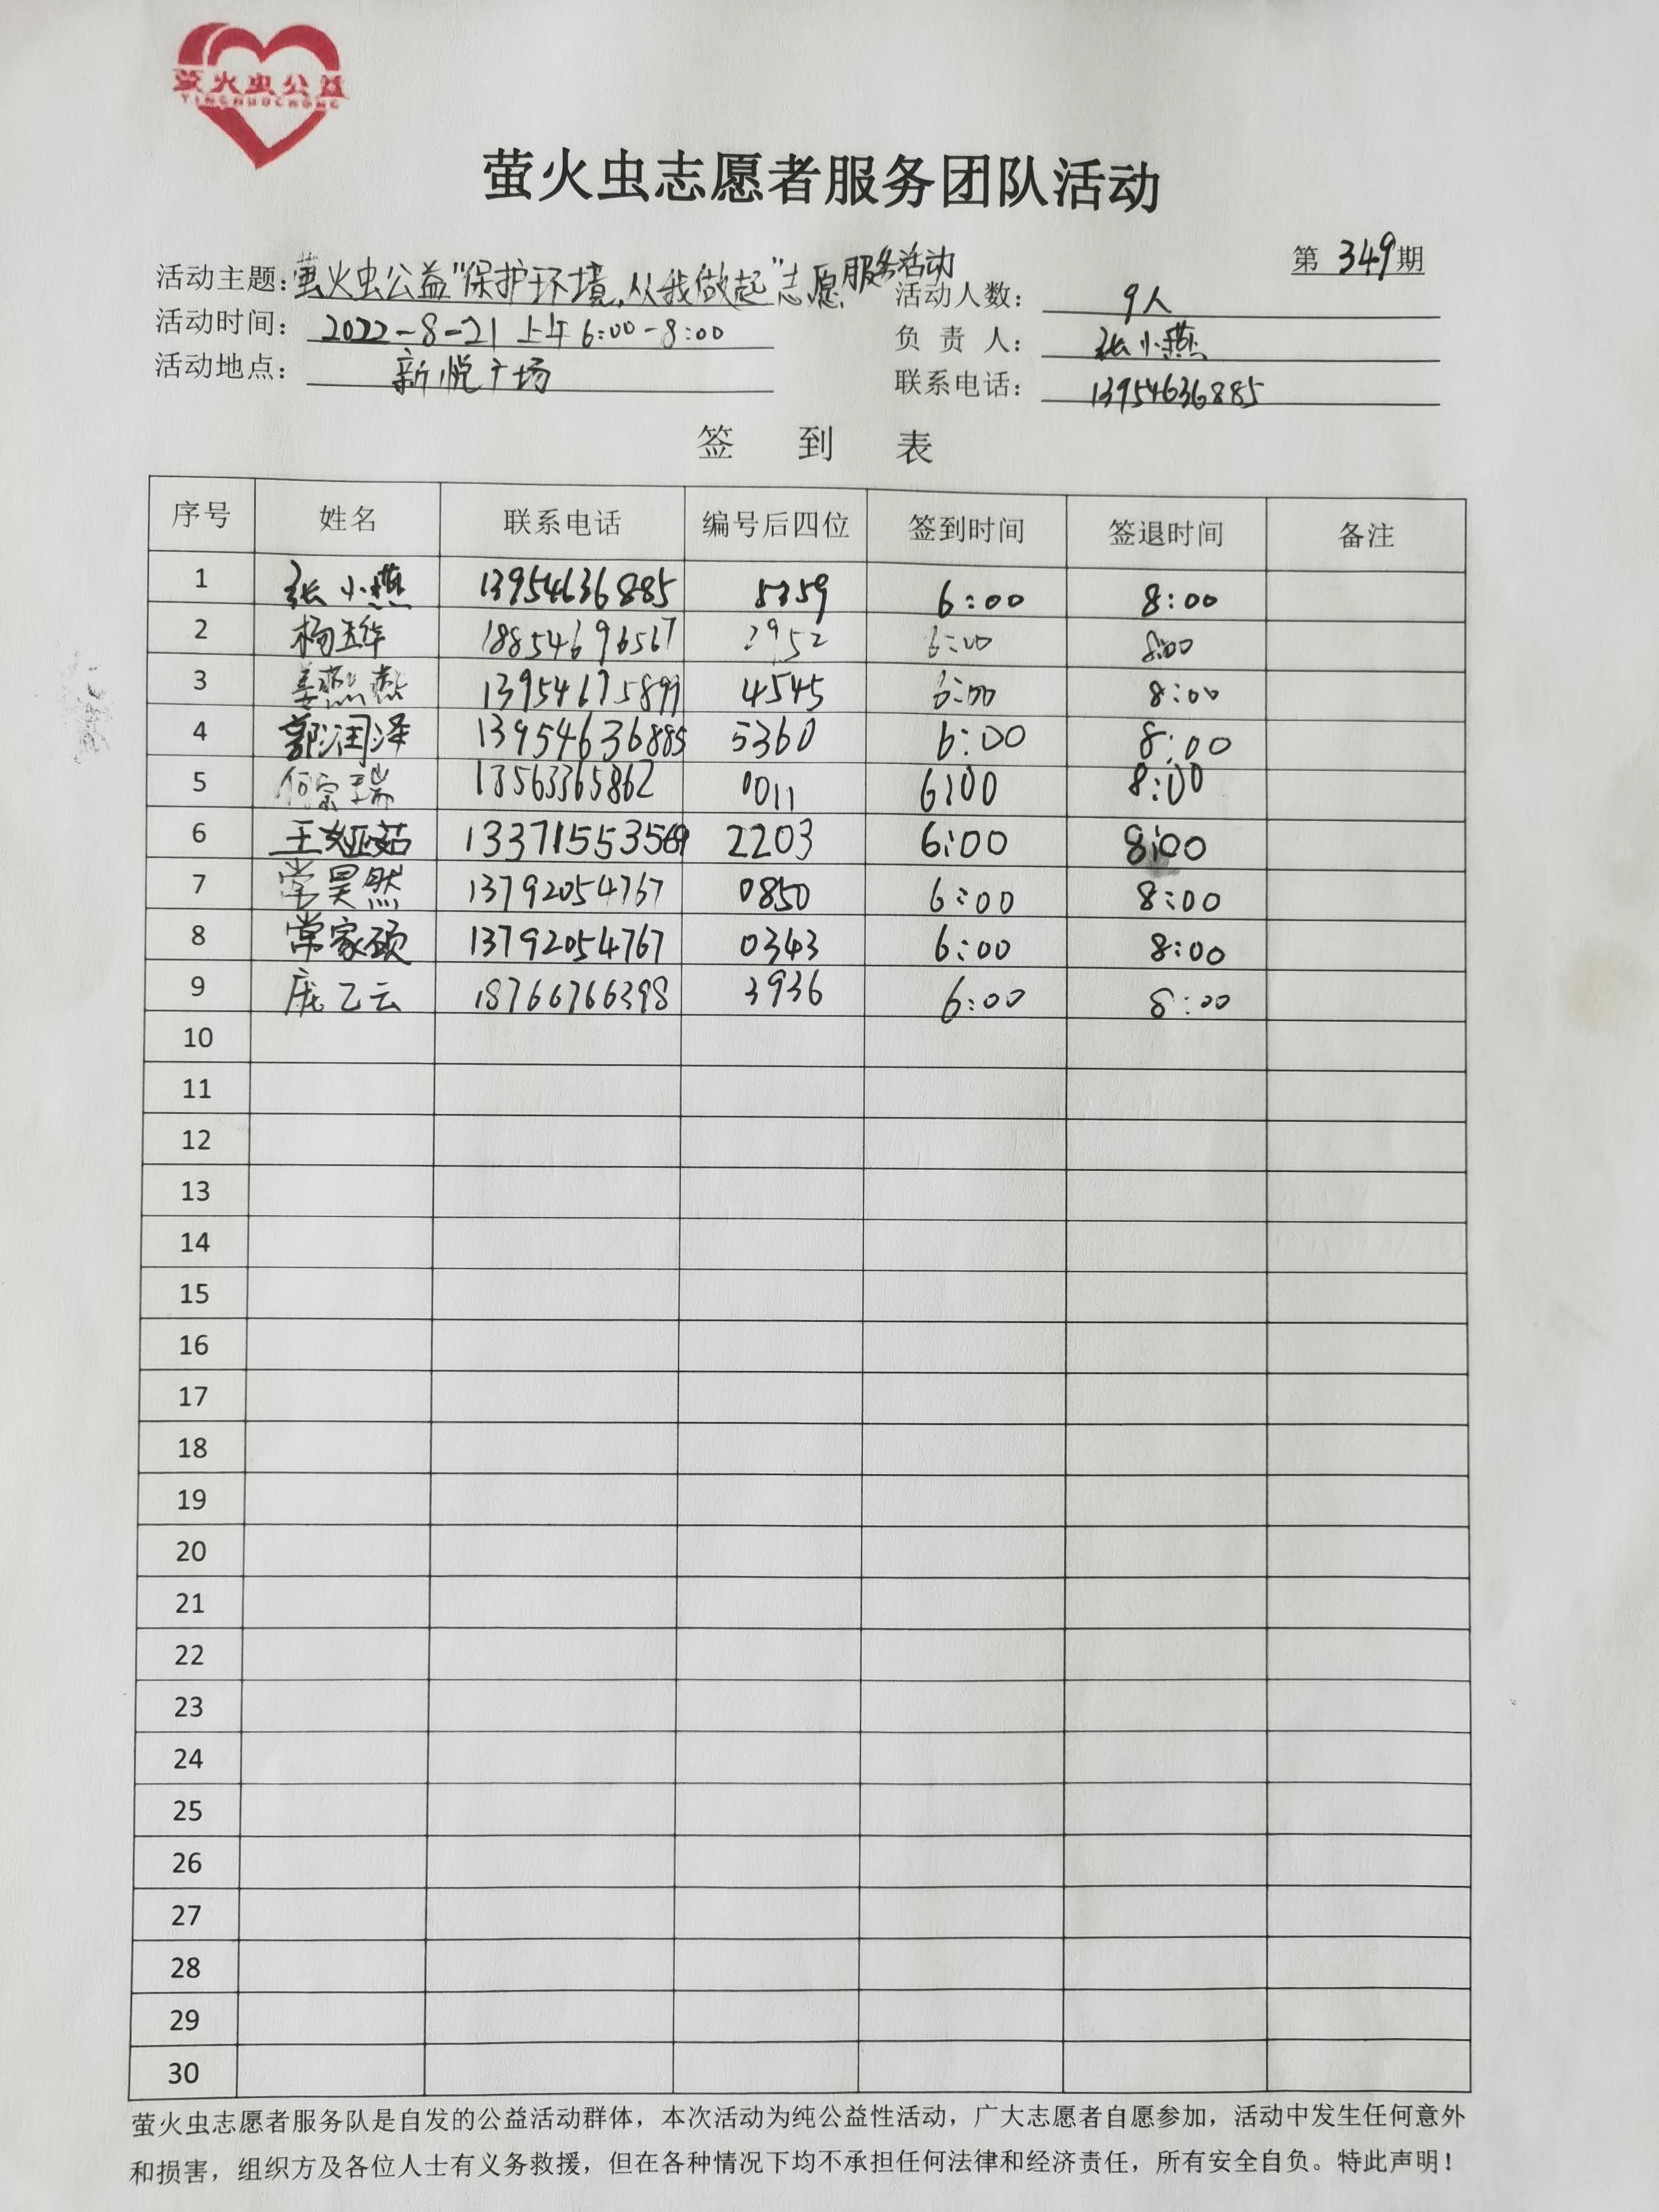 萤火虫公益
YINGHUOCHONG
萤火虫志愿者服务团队活动
第 349 期
活动主题：萤火虫公益"保护环境，从我做起"志愿服务活动
活动人数： 9人
活动时间： 2022-8-21 上午 6:00-8:00
负 责 人： 张小燕
活动地点： 新悦广场
联系电话： 13954636885
签 到 表
序号 姓名 联系电话 编号后四位 签到时间 签退时间 备注
1 张小燕 13954636885 5359 6:00 8:00
2 杨玉华 18854696567 2952 6:00 8:00
3 姜燕燕 13954675899 4545 6:00 8:00
4 郭润泽 13954636885 5360 6:00 8:00
5 何宗瑞 13563365862 0011 6:00 8:00
6 王姬茹 13371553569 2203 6:00 8:00
7 常昊然 13792054767 0850 6:00 8:00
8 常家硕 13792054767 0343 6:00 8:00
9 庞乙云 18766766398 3936 6:00 8:00
10
11
12
13
14
15
16
17
18
19
20
21
22
23
24
25
26
27
28
29
30
萤火虫志愿者服务队是自发的公益活动群体，本次活动为纯公益性活动，广大志愿者自愿参加，活动中发生任何意外
和损害，组织方及各位人士有义务救援，但在各种情况下均不承担任何法律和经济责任，所有安全自负。特此声明！